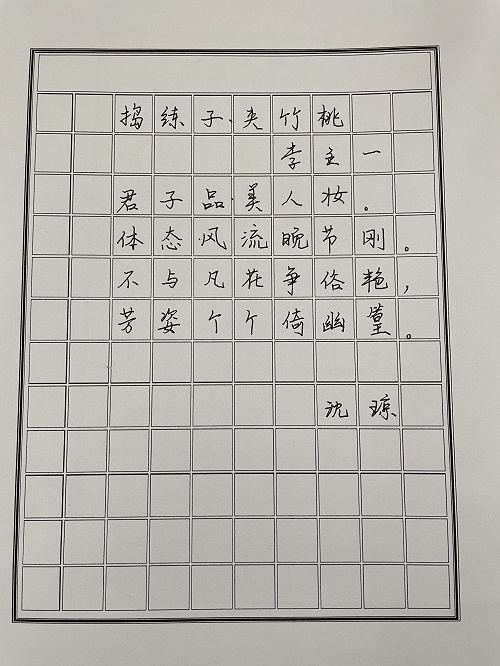 捣练子·夹竹桃
李主一
君子品·美人妆。
体态风流晚节刚。
不与凡花争俗艳,
芳姿个个倚幽篁。
沈琼